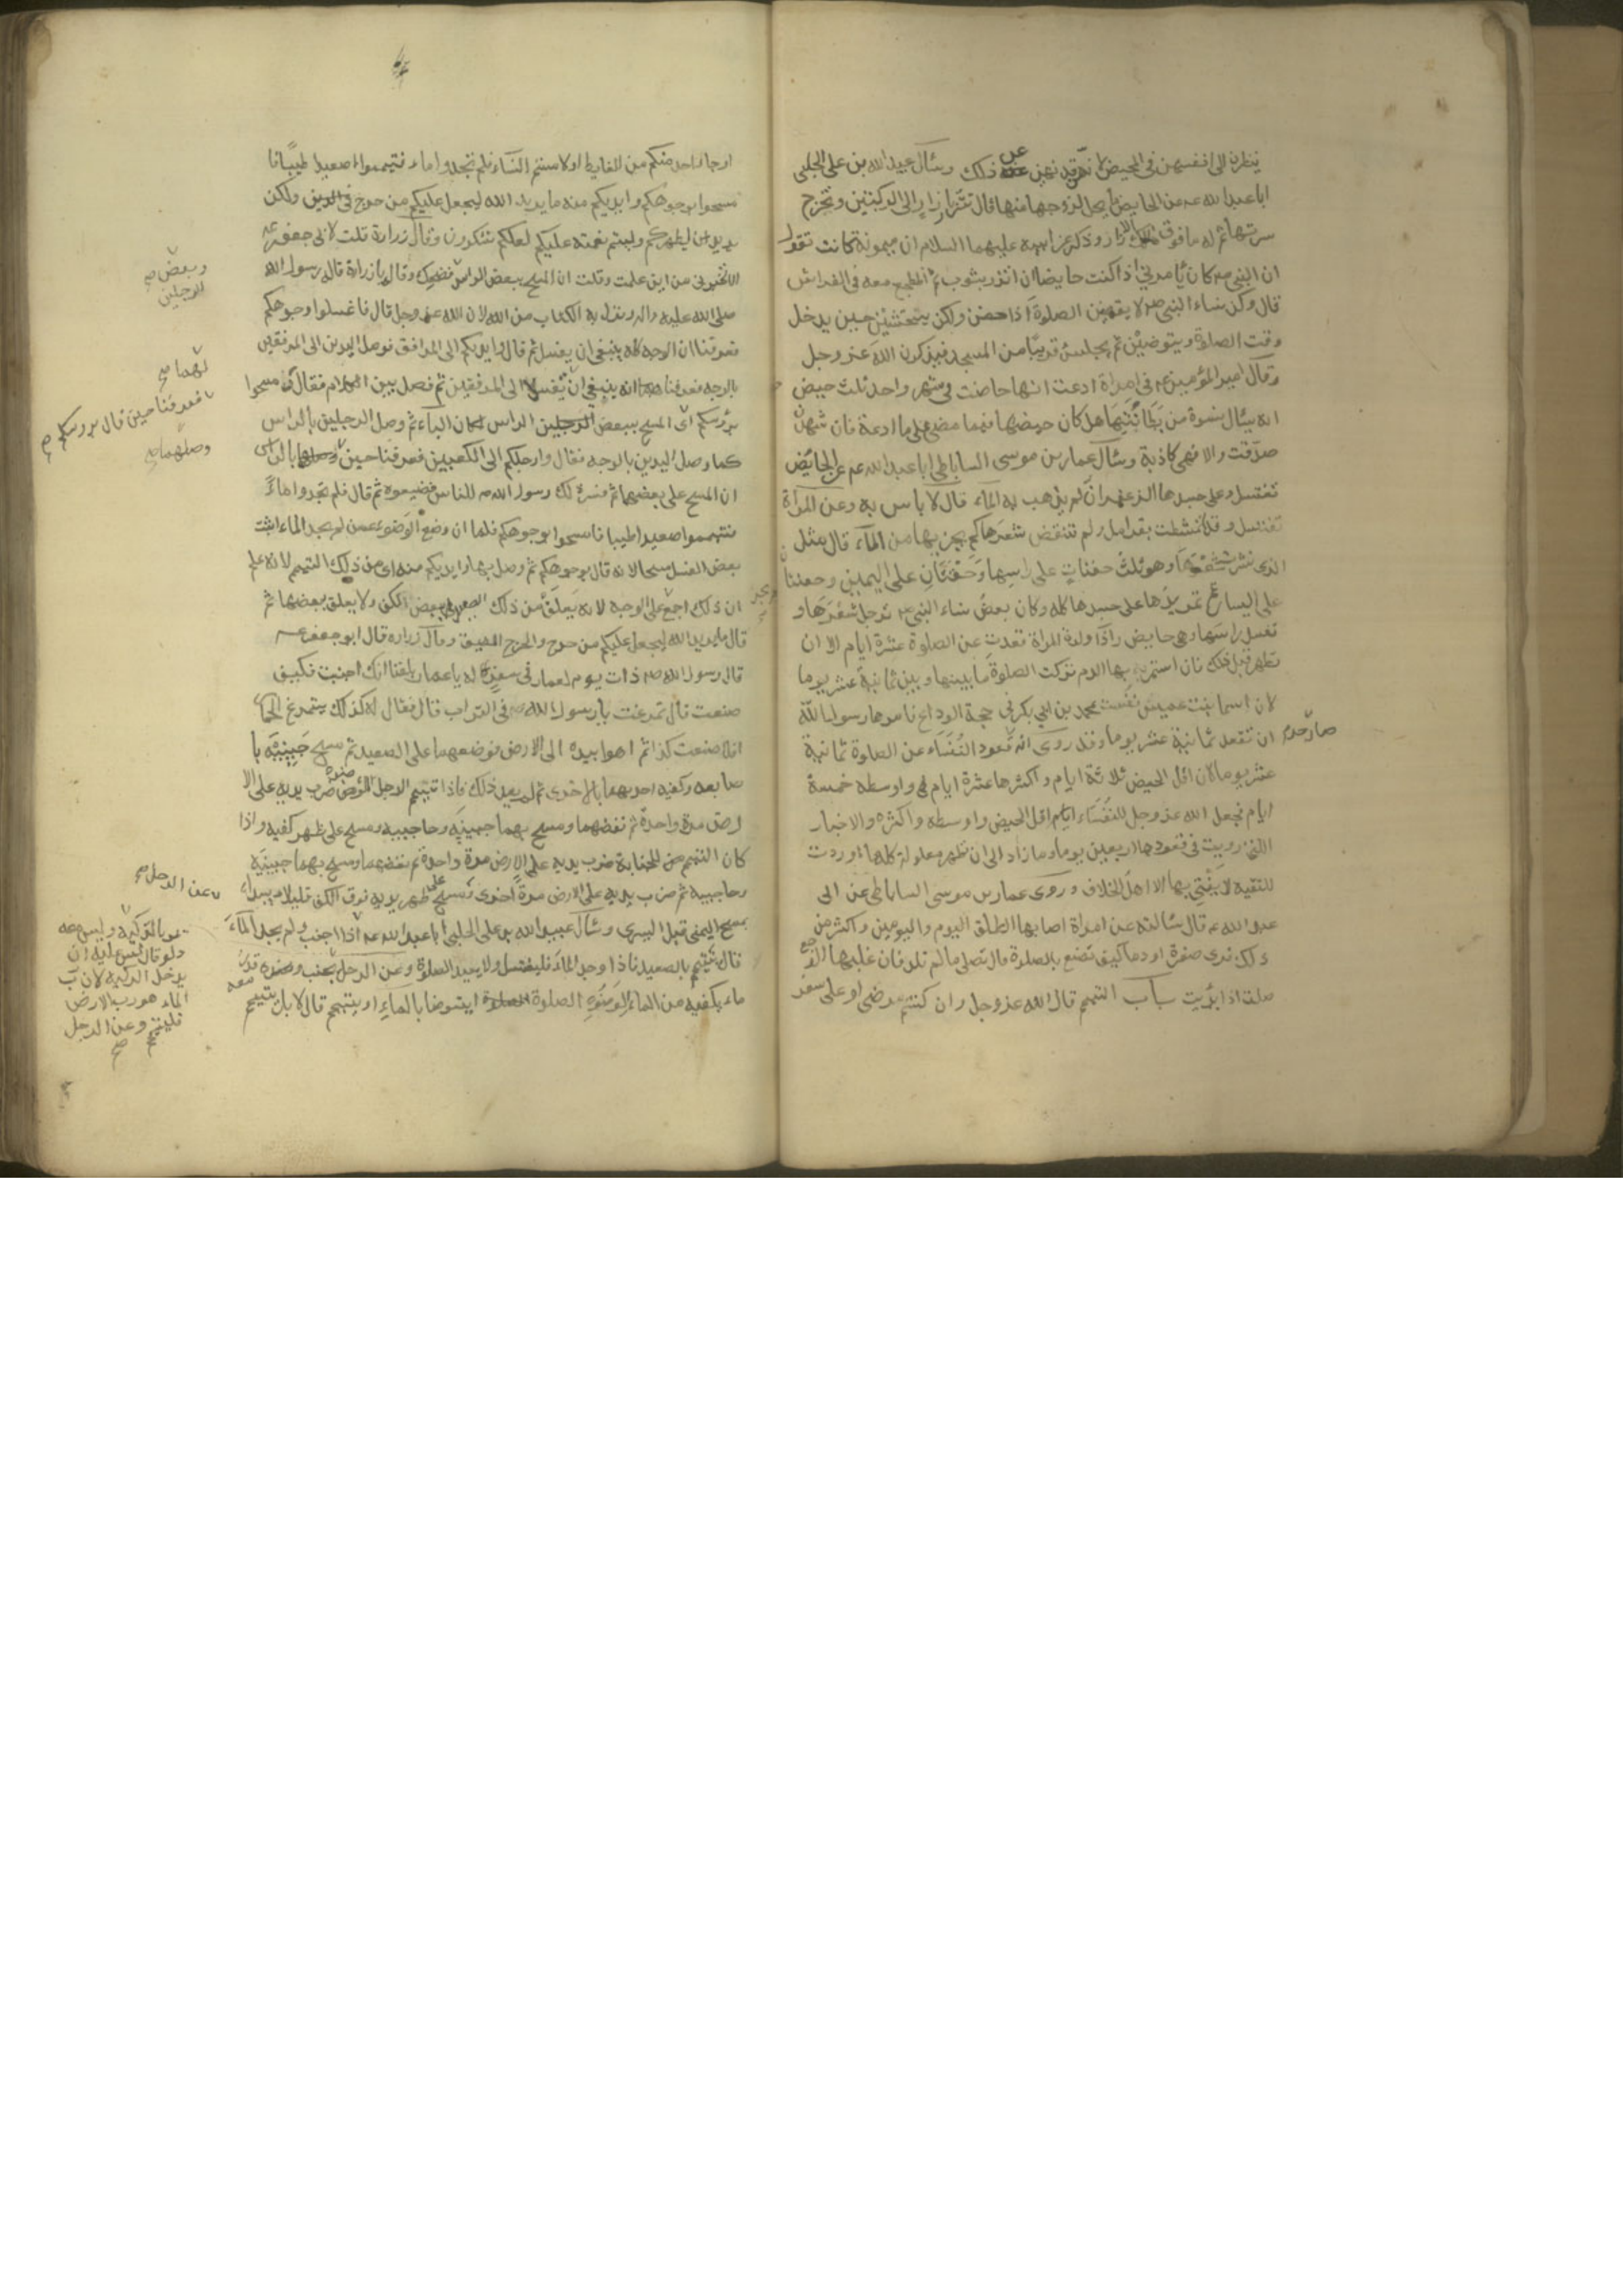 ينظرن الى انفسهن فى المحيض نهن عن ذلك وسئال عبيد الله بن على الحلبى
ابا عبد الله عه عن الحايض ما يحل لزوجها منها قال تتزر بازار الى الركبتين وتخرج
سرتها ثم له ما فوق الازار وذكر عن ابيه عليهما السلام ان ميمونة كانت تقول
ان النبى صم كان يأمرنى اذا كنت حايضا ان اتزر بثوب ثم اضطجع معه فى الفراش
قال وكن نساء النبى صم لا يقضين الصلوة اذا حضن ولكن يتحشين حين يدخل
وقت الصلوة ويتوضين ثم يجلسن قريبا من المسجد فيذكرن الله عز وجل
وقال امير المؤمنين عم فى امراة ادعت انها حاضت فى شهر واحد ثلث حيض
انه يسئال نسوة من بطانتها هل كان حيضها فيما مضى على ما ادعت فان شهدن
صدقت والا فهى كاذبة وسئال عمار بن موسى الساباطى ابا عبد الله عم عن الحائض
تغتسل وعلى جسدها الزعفران لم يذهب به الماء قال لا باس به وعن المراة
تغتسل وقد امتشطت بقرامل ولم تنقض شعرها كم يجزيها من الماء قال مثل
الذى نشرب شعرها وهو ثلث حفنات على راسها وحفنتان على اليمين وحفنتان
على اليسار ثم تمر يدها على جسدها كله وكان بعض نساء النبى صم ترجل شعرها و
تغسل راسها وهى حايض واذا ولدة المراة قعدت عن الصلوة عشرة ايام الا ان
تطهر قبل ذلك فان استمر بها الدم تركت الصلوة ما بينها وبين ثمانية عشر يوما
لان اسما بنت عميس نفست بمحمد بن ابى بكر فى حجة الوداع فامرها رسول الله
ان تقعد ثمانية عشر يوما وقد روى انه صار حد قعود النفساء عن الصلوة ثمانية
عشر يوما لان اقل الحيض ثلاثة ايام واكثرها عشرة ايام واوسطه خمسة
ايام فجعل الله عز وجل للنفساء ايام اقل الحيض واوسطه واكثره والاخبار
التى رويت فى قعودها اربعين يوما وما زاد الى ان تطهر معلولة كلها وردت
للتقية لا يفتى بها الا اهل الخلاف وروى عمار بن موسى الساباطى عن ابى
عبد الله عه قال سئالته عن امراة اصابها الطلق اليوم واليومين واكثر من
ذلك ترى صفرة او دما كيف تصنع بالصلوة قال تصلى ما لم تلد فان غلبها الوجع
صلت اذا برئت باب التيمم قال الله عز وجل وان كنتم مرضى او على سفر
او جاء احد منكم من الغايط او لامستم النساء فلم تجدوا ماء فتيمموا صعيدا طيبا فا
مسحوا بوجوهكم وايديكم منه ما يريد الله ليجعل عليكم من حرج فى الدين ولكن
يريد ليطهركم وليتم نعمته عليكم لعلكم تشكرون وقال زرارة قلت لابى جعفر عه
الا تخبرنى من اين علمت وقلت ان المسح ببعض الراس فضحك وقال يا زرارة قاله رسول الله
صلى الله عليه واله ونزل به الكتاب من الله لان الله عز وجل قال فاغسلوا وجوهكم
فعرفنا ان الوجه كله ينبغى ان يغسل ثم قال وايديكم الى المرافق فوصل اليدين الى المرفقين
بالوجه فعرفنا انه ينبغى ان تغسلا الى المرفقين ثم فصل بين الكلام فقال وامسحوا
برؤسكم ان المسح ببعض الراس لمكان الباء ثم وصل الرجلين بالراس
كما وصل اليدين بالوجه فقال وارجلكم الى الكعبين فعرفنا حين وصلهما بالراس
ان المسح على بعضهما ثم فسر ذلك رسول الله صم للناس فضيعوه ثم قال فلم تجدوا ماء
فتيمموا صعيدا طيبا فامسحوا بوجوهكم فلما ان وضع الوضوء عمن لم يجد الماء اثبت
بعض الغسل مسحا لانه قال بوجوهكم ثم وصل بها وايديكم منه اى من ذلك التيمم لانه علم
ان ذلك اجمع لم يجر على الوجه لانه يعلق من ذلك الصعيد ببعض الكف ولا يعلق ببعضها ثم
قال ما يريد الله ليجعل عليكم من حرج والحرج الضيق وقال زرارة قال ابو جعفر عه
قال رسول الله صم ذات يوم لعمار فى سفر له يا عمار بلغنا انك اجنبت فكيف
صنعت قال تمرغت يا رسول الله فى التراب قال فقال له كذلك يتمرغ الحمار
افلا صنعت كذا ثم اهوا بيده الى الارض فوضعهما على الصعيد ثم مسح جبينيه با
صابعه وكفيه احديهما بالاخرى ثم لم يعد ذلك فاذا تيمم الرجل للوضوء ضرب يديه على الا
رض مرة واحدة ثم نفضهما ومسح بهما جبينيه وحاجبيه ومسح على ظهر كفيه واذا
كان التيمم من الجنابة ضرب يديه على الارض مرة واحدة ثم نفضهما ومسح بهما جبينيه
وحاجبيه ثم ضرب يديه على الارض مرة اخرى ومسح على ظهر يديه فوق الكف قليلا ويبداء
بمسح اليمنى قبل اليسرى وسئال عبيد الله بن على الحلبى ابا عبد الله عه اذا اجنب ولم يجد الماء
قال يتيمم بالصعيد فاذا وجد الماء فليغتسل ولا يعيد الصلوة وعن الرجل يجنب ومعه قدر
ماء يكفيه من الماء لوضوء الصلوة ايتوضا بالماء او يتيمم قال لا بل يتيمم
وبعض
الرجلين صح
لهما صح
فعرفنا حين قال برؤسكم صح
وصلهما صح
عن الرجل صح
يمر بالركية وليس معه
دلو قال ليس عليه ان
يدخل الركية لان رب
الماء هو رب الارض
فليتيمم وعن الرجل
صح